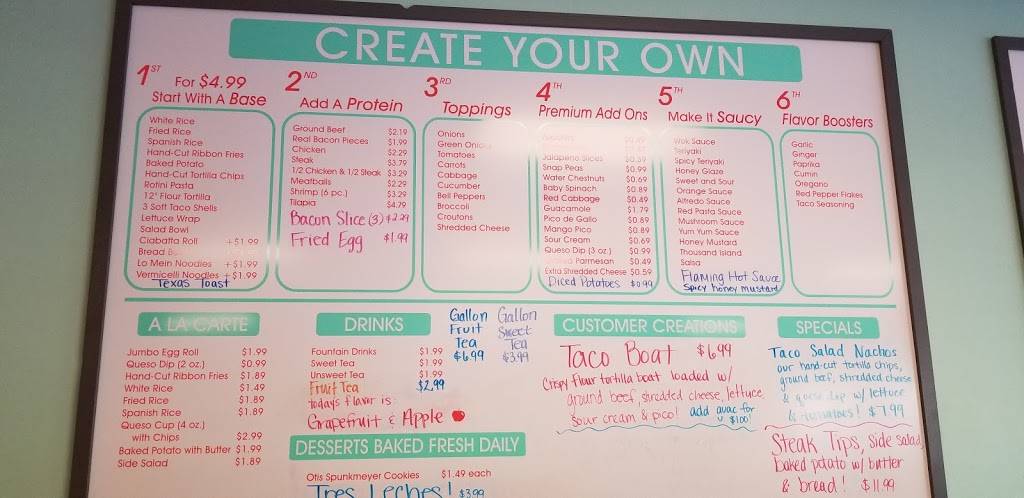 CREATE YOUR OWN
1ST For $4.99
Start With A Base
White Rice
Fried Rice
Spanish Rice
Hand-Cut Ribbon Fries
Baked Potato
Hand-Cut Tortilla Chips
Rotini Pasta
12" Flour Tortilla
3 Soft Taco Shells
Lettuce Wrap
Salad Bowl
Ciabatta Roll +$1.99
Bread
Lo Mein Noodles +$1.99
Vermicelli Noodles +$1.99
Texas Toast
2ND
Add A Protein
Ground Beef $2.19
Real Bacon Pieces $1.99
Chicken $2.29
Steak $3.79
1/2 Chicken & 1/2 Steak $3.29
Meatballs $2.29
Shrimp (6 pc.) $3.29
Tilapia $4.79
Bacon Slice (3) $2.29
Fried Egg $1.99
3RD
Toppings
Onions
Green Onions
Tomatoes
Carrots
Cabbage
Cucumber
Bell Peppers
Broccoli
Croutons
Shredded Cheese
4TH
Premium Add Ons
Jalapeno Slices $0.59
Snap Peas $0.99
Water Chestnuts $0.69
Baby Spinach $0.89
Red Cabbage $0.49
Guacamole $1.79
Pico de Gallo $0.89
Mango Pico $0.89
Sour Cream $0.69
Queso Dip (3 oz.) $0.99
Parmesan $0.49
Extra Shredded Cheese $0.59
Diced Potatoes $0.99
5TH
Make It Saucy
Wok Sauce
Teriyaki
Spicy Teriyaki
Honey Glaze
Sweet and Sour
Orange Sauce
Alfredo Sauce
Red Pasta Sauce
Mushroom Sauce
Yum Yum Sauce
Honey Mustard
Thousand Island
Salsa
Flaming Hot Sauce
Spicy honey mustard
6TH
Flavor Boosters
Garlic
Ginger
Paprika
Cumin
Oregano
Red Pepper Flakes
Taco Seasoning
A LA CARTE
Jumbo Egg Roll $1.99
Queso Dip (2 oz.) $0.99
Hand-Cut Ribbon Fries $1.89
White Rice $1.49
Fried Rice $1.89
Spanish Rice $1.89
Queso Cup (4 oz.)
with Chips $2.99
Baked Potato with Butter $1.99
Side Salad $1.89
DRINKS
Fountain Drinks $1.99
Sweet Tea $1.99
Unsweet Tea $1.99
Fruit Tea $2.99
todays flavor is:
Grapefruit & Apple
Gallon
Fruit
Tea
$6.99
Gallon
Sweet
Tea
$3.99
DESSERTS BAKED FRESH DAILY
Otis Spunkmeyer Cookies $1.49 each
Tres Leches! $3.99
CUSTOMER CREATIONS
Taco Boat $6.99
Crispy flour tortilla boat loaded w/
ground beef, shredded cheese, lettuce
sour cream & pico! add guac for
$1.00!
SPECIALS
Taco Salad Nachos
our hand-cut tortilla chips,
ground beef, shredded cheese
& queso dip w/ lettuce
& tomatoes! $7.99
Steak Tips, side salad,
baked potato w/ butter
& bread! $11.99